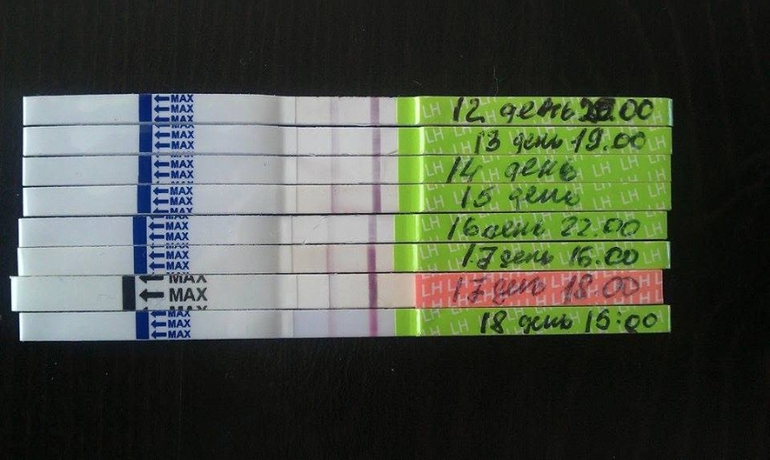 MAX
MAX
MAX
LH 12 день 20.00 LH
MAX
MAX
MAX
LH 13 день 19.00 LH
MAX
MAX
MAX
LH 14 день LH
MAX
MAX
MAX
LH 15 день LH
MAX
MAX
MAX
LH 16 день 22.00 LH
MAX
MAX
LH 17 день 16.00 LH
MAX
MAX
LH 17 день 18.00 LH
MAX
MAX
MAX
LH 18 день 15:00 LH